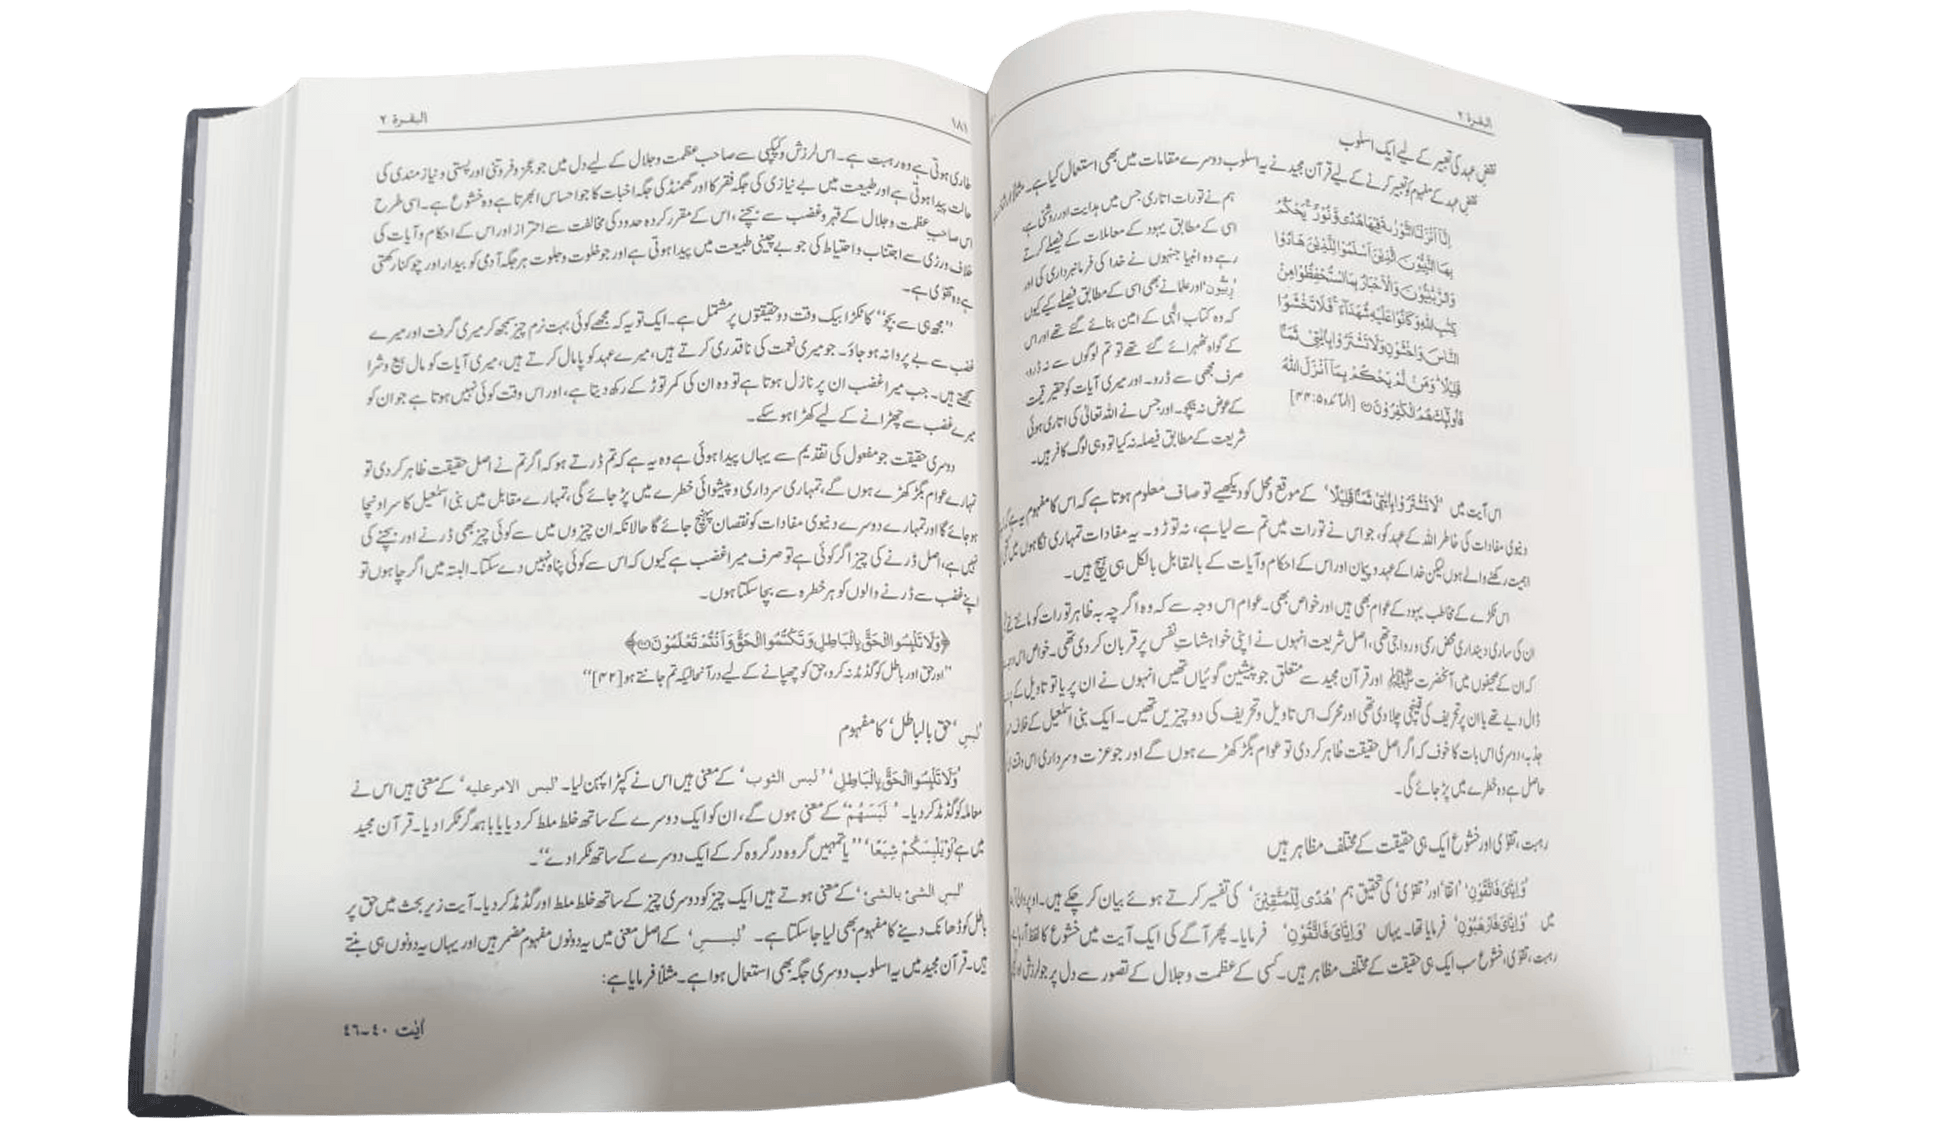 البقرة ۲
نقضِ عہد کی تعبیر کے لیے ایک اسلوب
نقضِ عہد کے مفہوم کو تعبیر کرنے کے لیے قرآن مجید نے یہ اسلوب دوسرے مقامات میں بھی استعمال کیا ہے۔ مثلاً
اِنَّاۤ اَنْزَلْنَا التَّوْرٰىةَ فِيْهَا هُدًى وَّنُوْرٌ ۚ يَحْكُمُ
بِهَا النَّبِيُّوْنَ الَّذِيْنَ اَسْلَمُوْا لِلَّذِيْنَ هَادُوْا
وَالرَّبّٰنِيُّوْنَ وَالْاَحْبَارُ بِمَا اسْتُحْفِظُوْا مِنْ
كِتٰبِ اللّٰهِ وَكَانُوْا عَلَيْهِ شُهَدَآءَ ۚ فَلَا تَخْشَوُا
النَّاسَ وَاخْشَوْنِ وَلَا تَشْتَرُوْا بِاٰيٰتِيْ ثَمَنًا
قَلِيْلًا ؕ وَمَنْ لَّمْ يَحْكُمْ بِمَاۤ اَنْزَلَ اللّٰهُ
فَاُولٰٓئِكَ هُمُ الْكٰفِرُوْنَ [المآئدہ ۵:۴۴]
ہم نے تورات اتاری جس میں ہدایت اور روشنی ہے
اسی کے مطابق یہود کے معاملات کے فیصلے کرتے
رہے وہ انبیا جنہوں نے خدا کی فرمانبرداری کی اور
ربّیون اور علما نے بھی اسی کے مطابق فیصلے کیے کیوں
کہ وہ کتاب الٰہی کے امین بنائے گئے تھے اور اس
کے گواہ ٹھہرائے گئے تھے تو تم لوگوں سے نہ ڈرو،
صرف مجھی سے ڈرو۔ اور میری آیات کو حقیر قیمت
کے عوض نہ بیچو۔ اور جس نے اللہ تعالیٰ کی اتاری ہوئی
شریعت کے مطابق فیصلہ نہ کیا تو وہی لوگ کافر ہیں۔
اس آیت میں ’لَا تَشْتَرُوْا بِاٰيٰتِيْ ثَمَنًا قَلِيْلًا‘ کے موقع و محل کو دیکھیے تو صاف معلوم ہوتا ہے کہ اس کا مفہوم یہ ہے کہ
دنیوی مفادات کی خاطر اللہ کے عہد کو، جو اس نے تورات میں تم سے لیا ہے، نہ توڑو۔ یہ مفادات تمہاری نگاہوں میں
اہمیت رکھنے والے ہوں لیکن خدا کے عہد و پیمان اور اس کے احکام و آیات کے بالمقابل بالکل ہی ہیچ ہیں۔
اس ٹکڑے کے مخاطب یہود کے عوام بھی ہیں اور خواص بھی۔ عوام اس وجہ سے کہ وہ اگرچہ بہ ظاہر تورات کو مانتے
ان کی ساری دینداری محض رسمی و رواجی تھی، اصل شریعت انہوں نے اپنی خواہشاتِ نفس پر قربان کر دی تھی۔ خواص اس
کہ ان کے صحیفوں میں آنحضرت ﷺ اور قرآن مجید سے متعلق جو پیشین گوئیاں تھیں انہوں نے ان پر یا تو تاویل کے
ڈال دیے تھے یا ان پر تحریف کی قینچی چلا دی تھی اور محرک اس تاویل و تحریف کی دو چیزیں تھیں۔ ایک بنی اسمٰعیل کے خلاف
جذبہ، دوسری اس بات کا خوف کہ اگر اصل حقیقت ظاہر کر دی تو عوام بگڑ کھڑے ہوں گے اور جو عزت و سرداری اس وقت
حاصل ہے وہ خطرے میں پڑ جائے گی۔
رہبت، تقوٰی اور خشوع ایک ہی حقیقت کے مختلف مظاہر ہیں
’وَاِيَّايَ فَاتَّقُوْنِ‘ ’اتقا‘ اور ’تقوٰی‘ کی تحقیق ہم ’هُدًى لِّلْمُتَّقِيْنَ‘ کی تفسیر کرتے ہوئے بیان کر چکے ہیں۔ اوپر والی
میں ’وَاِيَّايَ فَارْهَبُوْنِ‘ فرمایا تھا۔ یہاں ’وَاِيَّايَ فَاتَّقُوْنِ‘ فرمایا۔ پھر آگے کی ایک آیت میں خشوع کا لفظ آ رہا ہے۔
رہبت، تقوٰی، خشوع سب ایک ہی حقیقت کے مختلف مظاہر ہیں۔ کسی کے عظمت و جلال کے تصور سے دل پر جو لرزش اور
البقرة ۲
۱۸۱
طاری ہوتی ہے وہ رہبت ہے۔ اس لرزش و کپکپی سے صاحب عظمت و جلال کے لیے دل میں جو عجز و فروتنی اور پستی و نیاز مندی کی
حالت پیدا ہوتی ہے اور طبیعت میں بے نیازی کی جگہ فقر کا اور گھمنڈ کی جگہ اخبات کا جو احساس ابھرتا ہے وہ خشوع ہے۔ اسی طرح
اس صاحب عظمت و جلال کے قہر و غضب سے بچنے، اس کے مقرر کردہ حدود کی مخالفت سے احتراز اور اس کے احکام و آیات کی
خلاف ورزی سے اجتناب و احتیاط کی جو بے چینی طبیعت میں پیدا ہوتی ہے اور جو خلوت و جلوت ہر جگہ آدمی کو بیدار اور چوکنا رکھتی
ہے وہ تقوٰی ہے۔
’’مجھ ہی سے بچو‘‘ کا ٹکڑا بیک وقت دو حقیقتوں پر مشتمل ہے۔ ایک تو یہ کہ مجھے کوئی بہت نرم چیز سمجھ کر میری گرفت اور میرے
غضب سے بے پروا نہ ہو جاؤ۔ جو میری نعمت کی ناقدری کرتے ہیں، میرے عہد کو پامال کرتے ہیں، میری آیات کو مال بیع و شرا
سمجھتے ہیں۔ جب میرا غضب ان پر نازل ہوتا ہے تو وہ ان کی کمر توڑ کے رکھ دیتا ہے، اور اس وقت کوئی نہیں ہوتا ہے جو ان کو
میرے غضب سے چھڑانے کے لیے کھڑا ہو سکے۔
دوسری حقیقت جو مفعول کی تقدیم سے یہاں پیدا ہوئی ہے وہ یہ ہے کہ تم ڈرتے ہو کہ اگر تم نے اصل حقیقت ظاہر کر دی تو
تمہارے عوام بگڑ کھڑے ہوں گے، تمہاری سرداری و پیشوائی خطرے میں پڑ جائے گی، تمہارے مقابل میں بنی اسمٰعیل کا سر اونچا
ہو جائے گا اور تمہارے دوسرے دنیوی مفادات کو نقصان پہنچ جائے گا حالانکہ ان چیزوں میں سے کوئی چیز بھی ڈرنے اور بچنے کی
نہیں ہے، اصل ڈرنے کی چیز اگر کوئی ہے تو صرف میرا غضب ہے کیوں کہ اس سے کوئی پناہ نہیں دے سکتا۔ البتہ میں اگر چاہوں تو
اپنے غضب سے ڈرنے والوں کو ہر خطرہ سے بچا سکتا ہوں۔
﴿وَلَا تَلْبِسُوا الْحَقَّ بِالْبَاطِلِ وَتَكْتُمُوا الْحَقَّ وَاَنْتُمْ تَعْلَمُوْنَ﴾
’’اور حق اور باطل کو گڈمڈ نہ کرو، حق کو چھپانے کے لیے درآنحالیکہ تم جانتے ہو [۴۲]‘‘
’لبسِ حق بالباطل‘ کا مفہوم
’وَلَا تَلْبِسُوا الْحَقَّ بِالْبَاطِلِ‘ ’لبس الثوب‘ کے معنی ہیں اس نے کپڑا پہن لیا۔ ’لبس الامر علیہ‘ کے معنی ہیں اس نے
معاملہ کو گڈمڈ کر دیا۔ ’لَبَسَهُمْ‘ کے معنی ہوں گے، ان کو ایک دوسرے کے ساتھ خلط ملط کر دیا یا باہمدگر ٹکرا دیا۔ قرآن مجید
میں ہے ’اَوْ يَلْبِسَكُمْ شِيَعًا‘ ’’یا تمہیں گروہ در گروہ کر کے ایک دوسرے کے ساتھ ٹکرا دے‘‘۔
’لبس الشئ بالشئ‘ کے معنی ہوتے ہیں ایک چیز کو دوسری چیز کے ساتھ خلط ملط اور گڈمڈ کر دیا۔ آیت زیر بحث میں حق پر
باطل کو ڈھانک دینے کا مفہوم بھی لیا جا سکتا ہے۔ ’لبس‘ کے اصل معنی میں یہ دونوں مفہوم مضمر ہیں اور یہاں یہ دونوں ہی بنتے
ہیں۔ قرآن مجید میں یہ اسلوب دوسری جگہ بھی استعمال ہوا ہے۔ مثلاً فرمایا ہے:
اٰیٰت ۴۰-۴۶